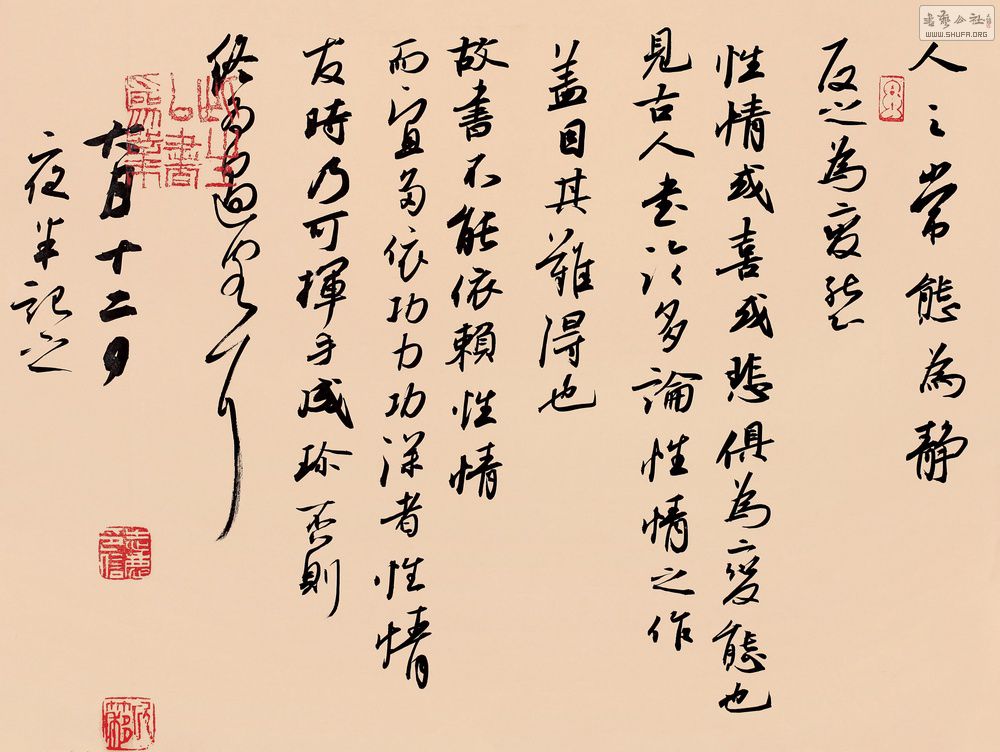 书艺公社
WWW.SHUFA.ORG
人之常態為静
反之為变態
性情或喜或悲俱為變態也
見古人書法多論性情之作
盖因其難得也
故書不能依賴性情
而宜多依功力功深者性情
发時乃可揮手成珍否則
终為過眼
六月十二日
夜半記之
此生以書為業